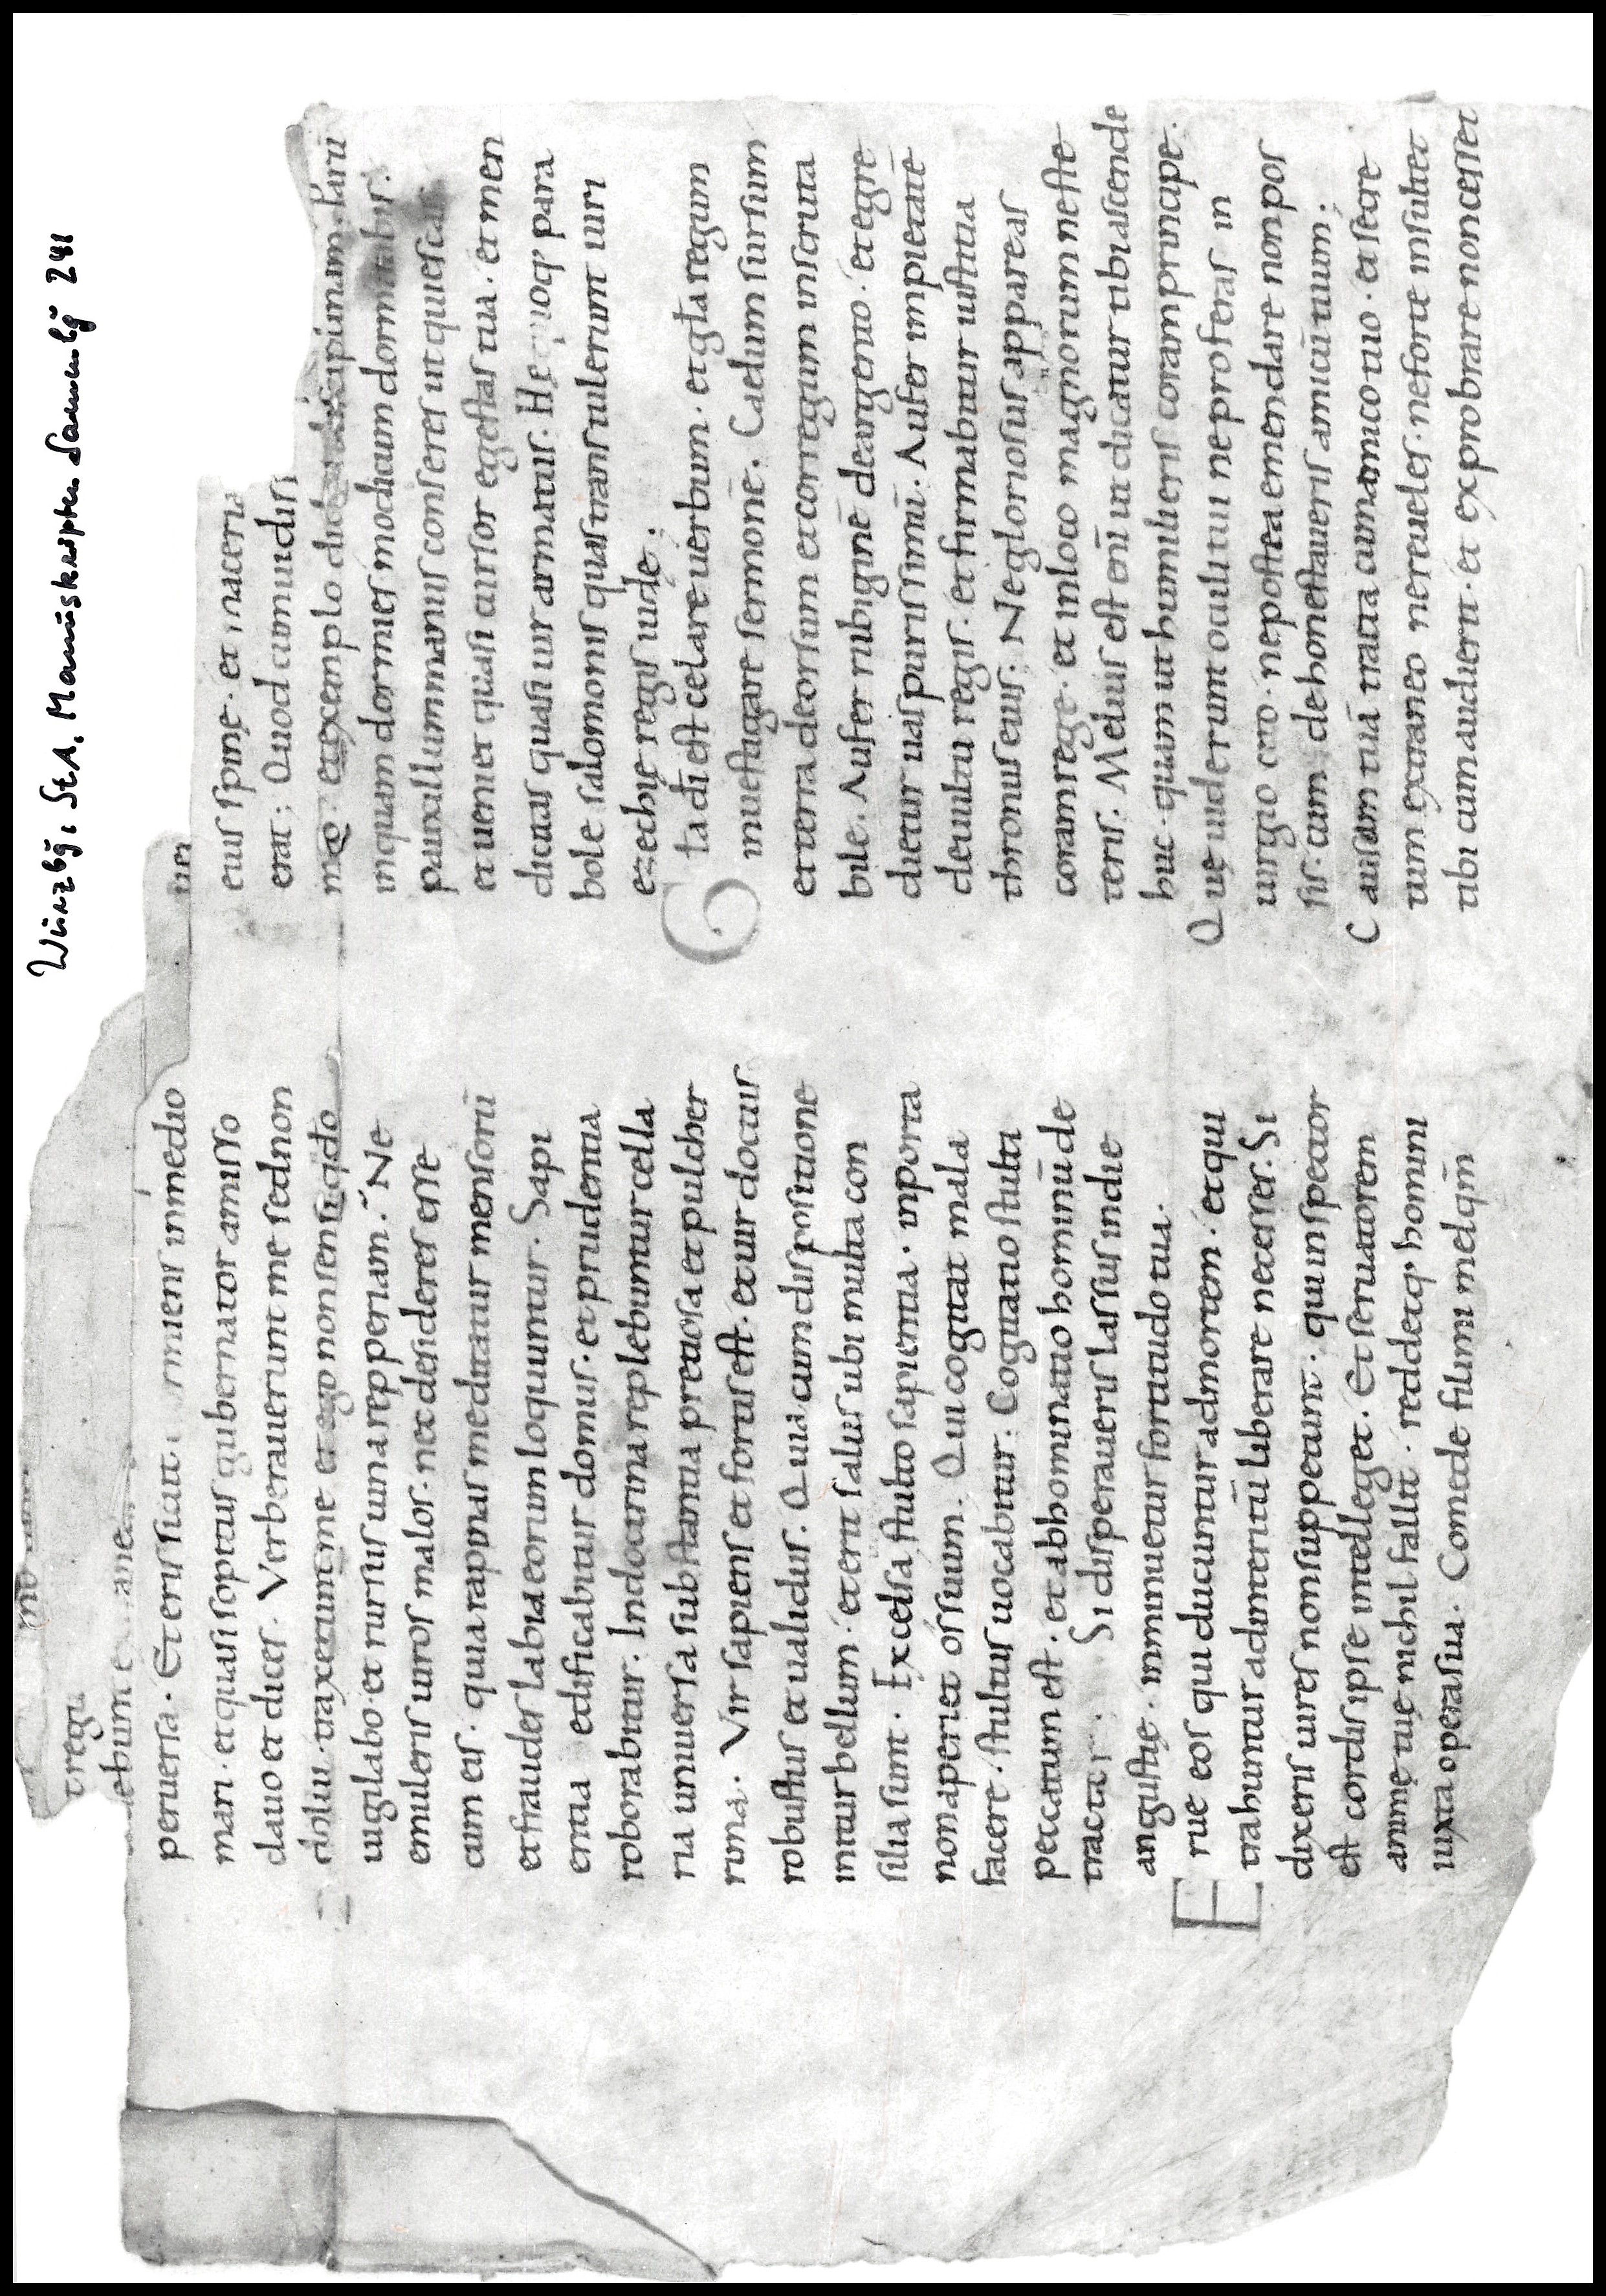 Würzbg, StA, Manuskripten Sammlg 241
tregu
ebunt
peruersa. Et eris sicut rmiens inmedio
mari. et quasi sopitus gubernator amisso
clauo et dices. Verberauerunt me sed non
dolui. traxerunt me et ego non sensi. qdo
uigilabo et rursus uina repperiam. Ne
emuleris uiros malos. nec desideres esse
cum eis. quia rapinas meditatur mens eorū
et fraudes labia eorum loquuntur. Sapi
entia edificabitur domus. et prudentia
roborabitur. In doctrina replebuntur cella
ria uniuersa substantia pretiosa et pulcher
rima. Vir sapiens et fortis est. et uir doctus
robustus et ualidus. Quia cum dispositione
initur bellum. et erit salus ubi multa con
silia sunt. Excelsa stulto sapientia. in porta
non aperiet os suum. Qui cogitat mala
facere. stultus uocabitur. Cogitatio stulti
peccatum est. et abhominatio hominū de
tractor. Si disperaueris lassus in die
angustię. imminuetur fortitudo tua.
Erue eos qui ducuntur ad mortem. et qui
trahuntur ad interitū liberare ne cesses. Si
dixeris uires non suppetunt. qui inspector
est cordis ipse intelleget. Et seruatorem
animę tuę nichil fallit. reddetq; homini
iuxta opera sua. Comede fili mi mel qm̄
eius spine. et maceria
erat; Quod cum uidissē
meo. et exemplo didici disciplinam. Parū
inquam dormies modicum dormitabis.
pauxillum manus conseres ut quiescas
et ueniet quasi cursor egestas tua. et men
dicitas quasi uir armatus. Hęc quoq; para
bolę salomonis quas transtulerunt uiri
ezechię regis iudę;
Gl̄a dī est celare uerbum. et gl̄a regum
inuestigare sermonē. Caelum sursum
et terra deorsum et cor regum inscruta
bile. Aufer rubiginē de argento. et egre
dietur uas purissimū. Aufer impietatē
de uultu regis. et firmabitur iustitia
thronus eius; Ne gloriosus appareas
coram rege. et in loco magnorum ne ste
teris. Melius est enī ut dicatur tibi ascende
huc. quam ut humilieris coram principe.
Quę uiderunt oculi tui ne proferas in
iurgio cito. ne postea emendare non pos
sis. cum dehonestaueris amicū tuum;
Causam tuā tracta cum amico tuo. et secre
tum extraneo ne reueles. ne forte insultet
tibi cum audierit. et exprobrare non cesset